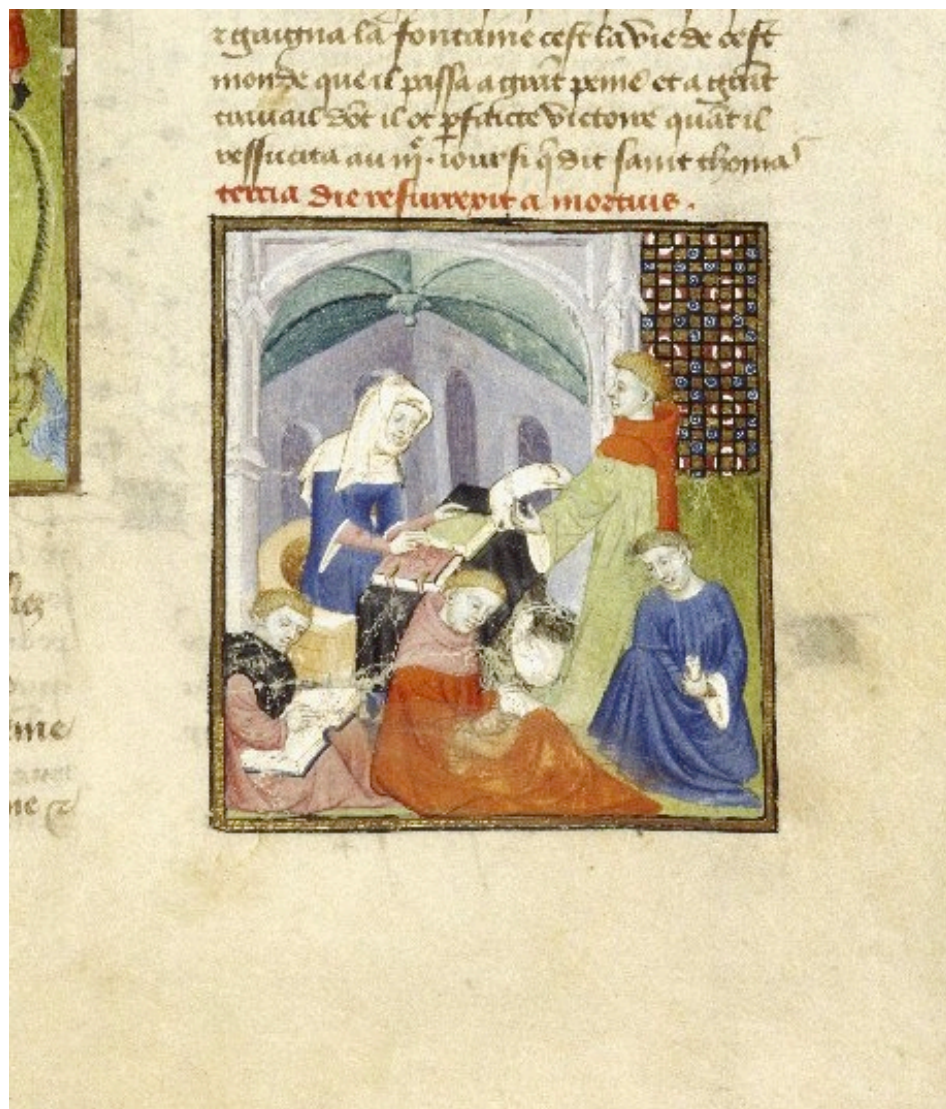 et gaigna la fontaine cest la vie de cest
monde que il passa a grāt peine et a grāt
trauail dōt il ot p̱faicte victoire quāt il
ressucita au iij͛. iour si q̄ dit saint thomas
tercia die resurrexit a mortuis.
me
me